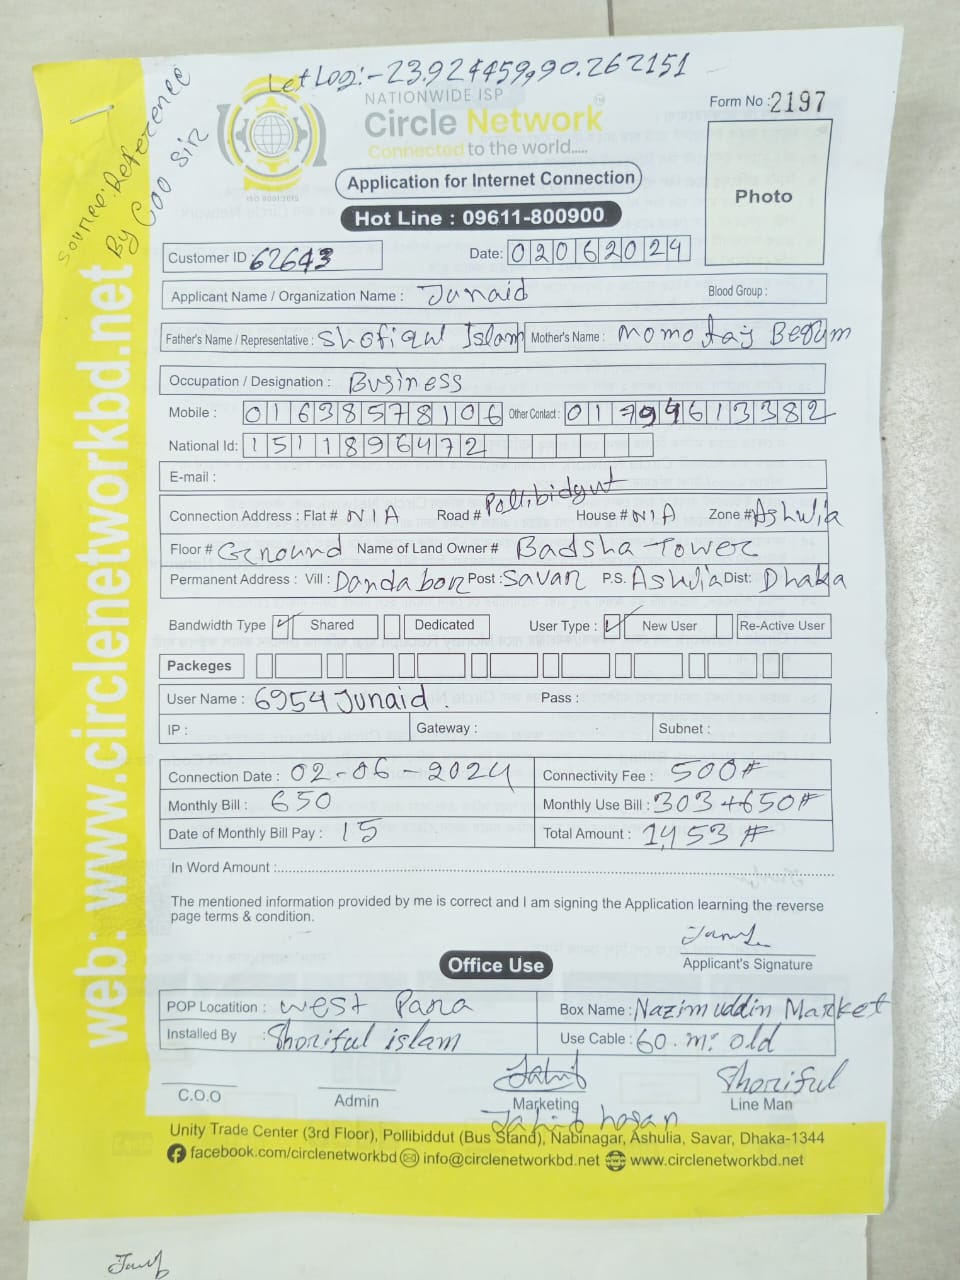 Let Log:-23.924459,90.262151
Source:Reference
By COO Sir
NATIONWIDE ISP
Circle Network
Connected to the world.....
ISO 9001:2015
Form No : 2197
Photo
Application for Internet Connection
Hot Line : 09611-800900
Customer ID 62643
Date: 02062024
Applicant Name / Organization Name : Junaid
Blood Group :
Father's Name / Representative : Shofiqul Islam Mother's Name : Momotaj Begum
Occupation / Designation : Business
Mobile : 01638578106 Other Contact : 01794613382
National Id: 1511896472
E-mail :
Connection Address : Flat # N/A Road # Pollibidyut House # N/A Zone # Ashulia
Floor # Ground Name of Land Owner # Badsha Tower
Permanent Address : Vill : Dandabor Post : Savar P.S. Ashulia Dist: Dhaka
Bandwidth Type ✓ Shared Dedicated User Type : ✓ New User Re-Active User
Packeges
User Name : 6954Junaid. Pass :
IP : Gateway : Subnet :
Connection Date : 02-06-2024 Connectivity Fee : 500#
Monthly Bill : 650 Monthly Use Bill : 303+650#
Date of Monthly Bill Pay : 15 Total Amount : 1,453#
In Word Amount :
The mentioned information provided by me is correct and I am signing the Application learning the reverse
page terms & condition.
Applicant's Signature
Office Use
POP Locatition : West Para Box Name : Nazim uddin Market
Installed By : Shoriful islam Use Cable : 60.m: old
Shoriful
C.O.O Admin Marketing Line Man
Jahid hasan
Unity Trade Center (3rd Floor), Pollibiddut (Bus Stand), Nabinagar, Ashulia, Savar, Dhaka-1344
facebook.com/circlenetworkbd info@circlenetworkbd.net www.circlenetworkbd.net
web: www.circlenetworkbd.net